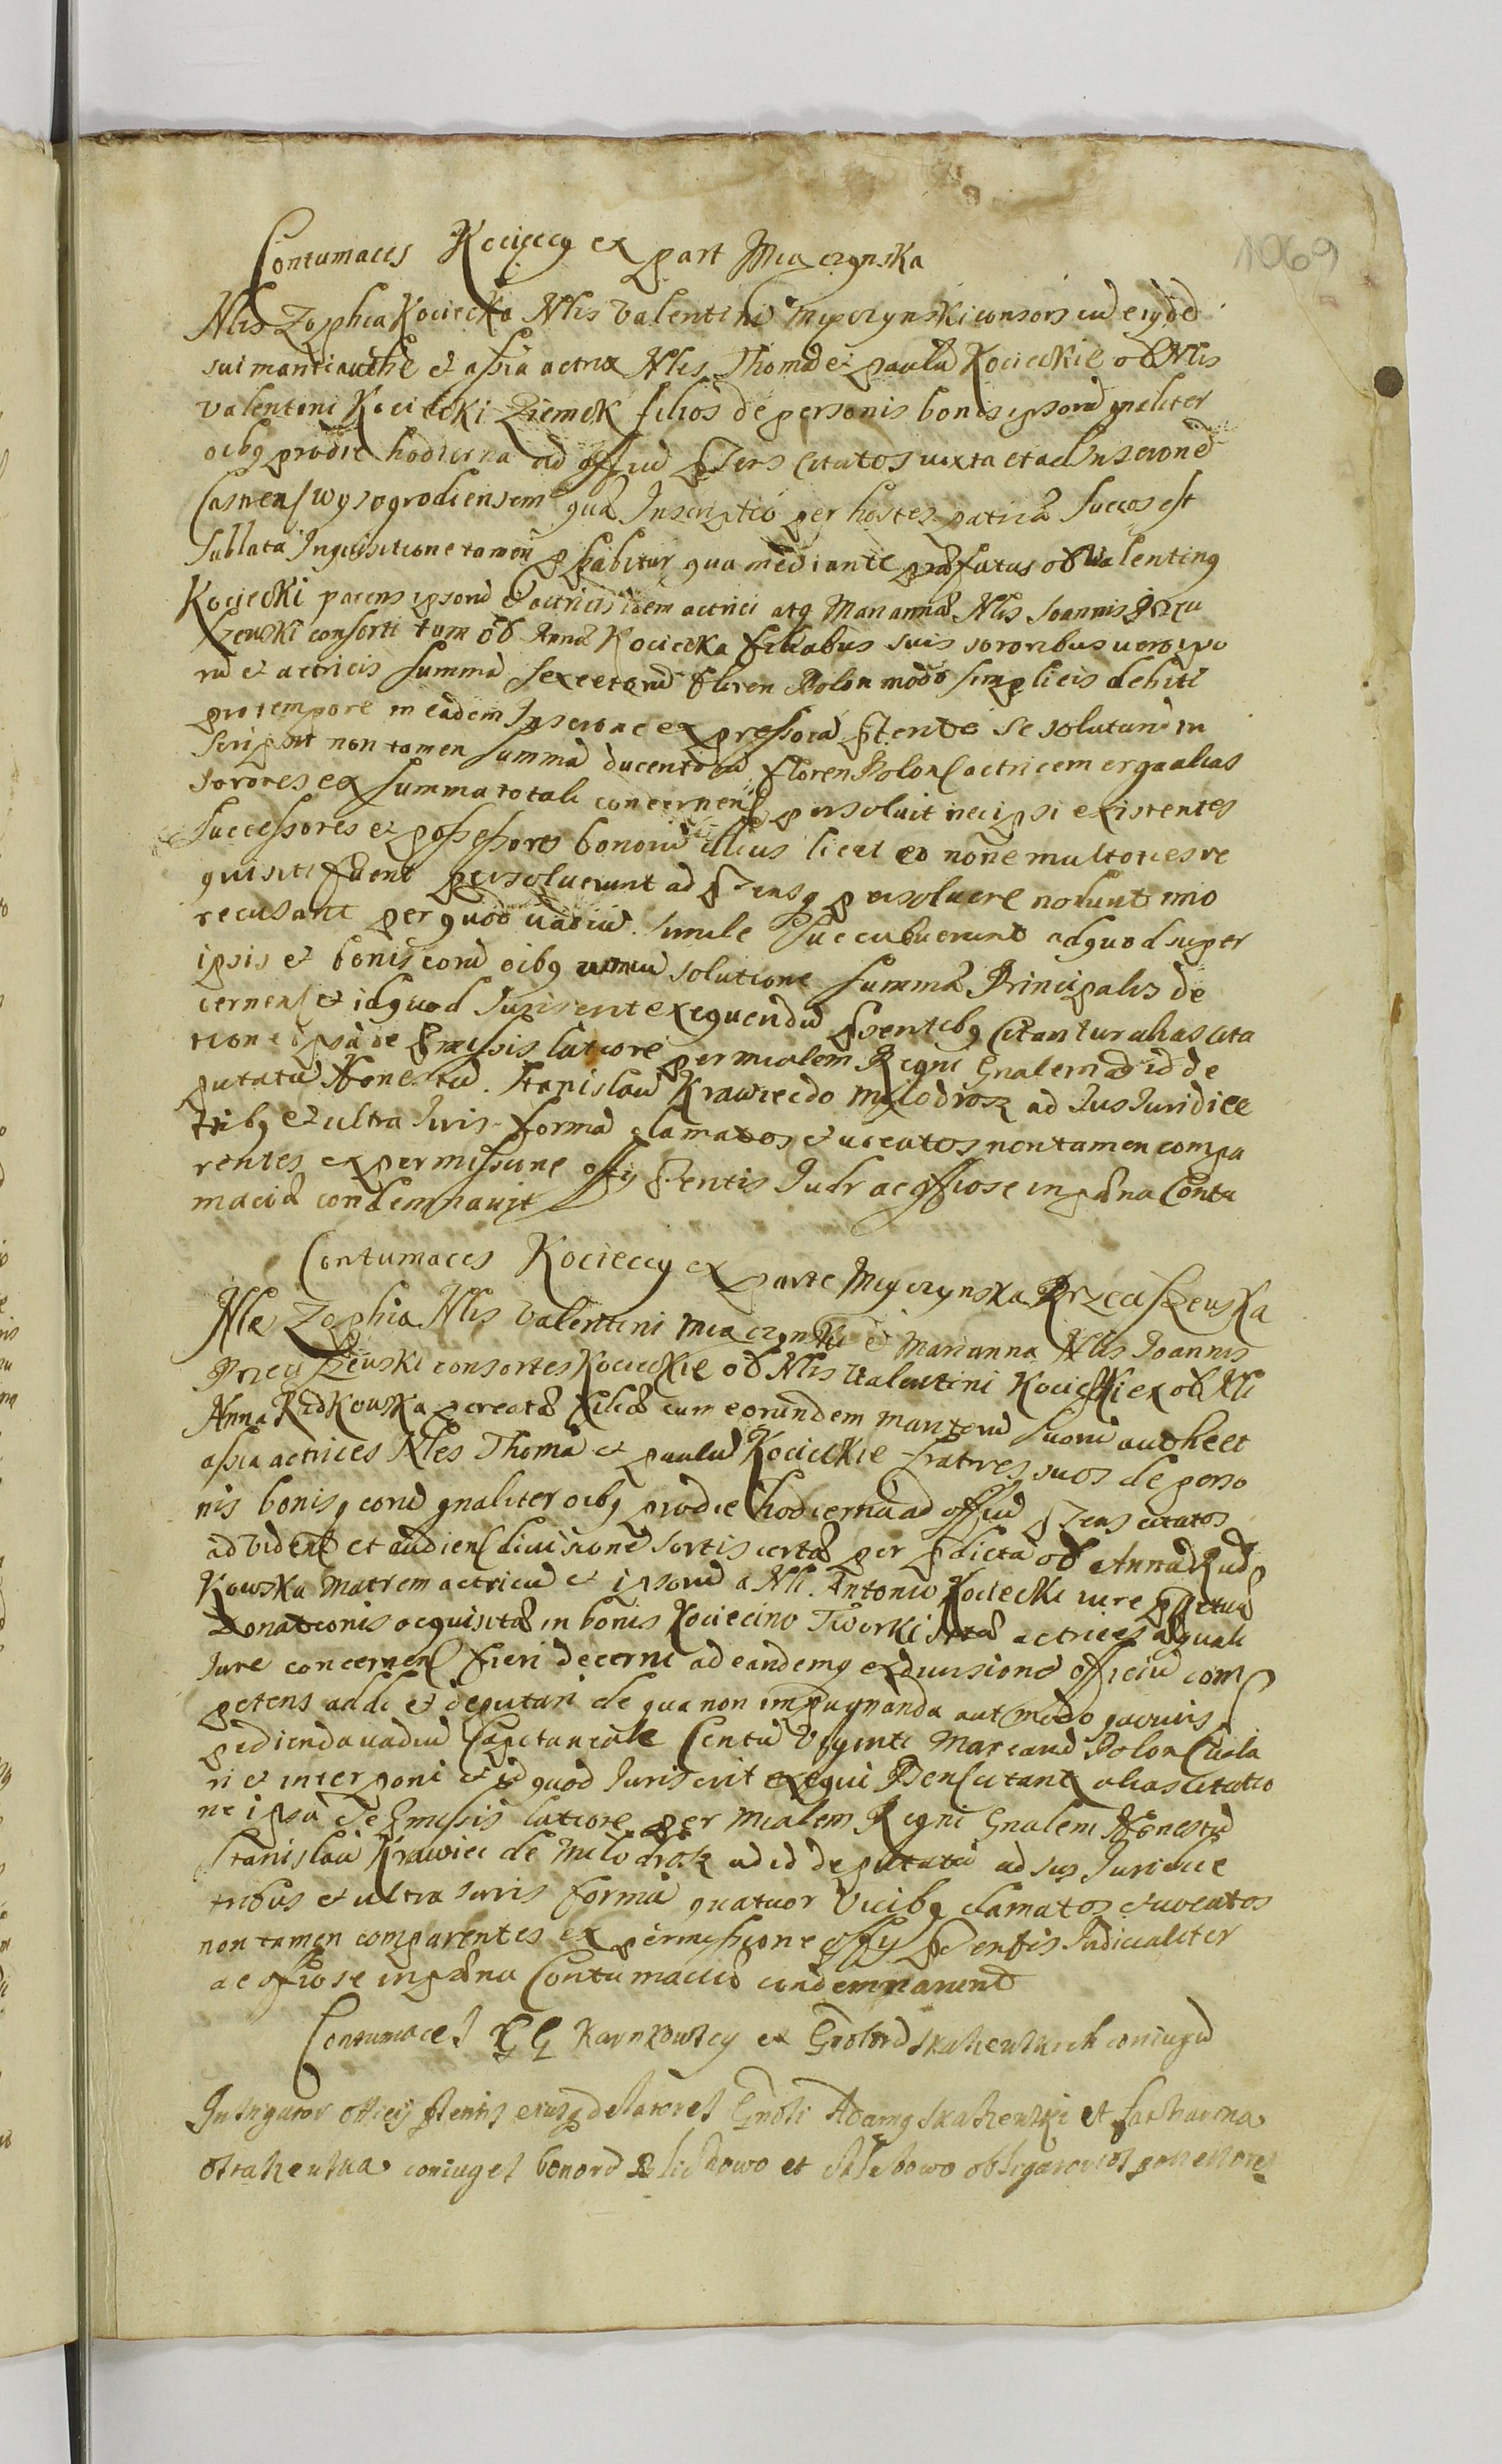 1069
Contumaces Kocięccy ex part Miączynska
Nlis Zophia Kociecka Nlis Valentini Miączynski consors cu eiġde
sui mariti authe et assia actrix Nlis Thoma et Paulu Kocieckie ol Nlis
Valentini Kociecki Ziemek filios de personis bonis ipsoru gnaliter
oibq pro die hodierna ad offiu pñs citatos iuxta et ad Inscrione
Castren Wysogrodiensem qua Inscriptio per hostes patriæ succos est
sublata Inquisitione tamen phabitur qua mediante præfatus ol Valentinq
Kociecki parens ipsoru et actricis idem actrici atq Marianna Nlis Joannis Przeci
szewski consorti tum ol Anna Kociecka filiabus suis sororibus vero ipo
ru et actricis summa sexcetoru floren Polon modo simplicis debiti
pro tempore in eadem Inscrione expressoru se soluturu in
scripsit non tamen summa ducentoru floren Polon actricem erga alias
sorores ex summa totali concernen persoluit nec ipsi existentes
successores et possessores bonoru illius licet eo noñe multoties re
quisiti fuent persoluerunt ad pñsq persoluere nolunt imo
recusant per quod uadiu simile succubuerunt ad quod super
ipsis et bonis eoru oibq unacu solutione summæ Principalis de
cernen et id quod Juris erit exequendu pñentibq citantur alias cita
tione ipsa de præmissis latiore per mialem Regni Gnalem ad id de
putatu Honestu Stanislau Krawiec do Milodroz ad Jus Juridice
tribq et ultra Juris forma clamatos et uocatos non tamen compa
rentes ex permissione offy pñentis Judr ac offiose in pæna Contu
maciæ condemnauit
Contumaces Kocieccy ex parte Miączynska Przeciszewska
Nle Zophia Nlis Valentini Miączynski et Marianna Nlis Joannis
Przeciszewski consortes Kocieckie ol Nlis Valentini Kociecki ex ol Nli
Anna Rudkowska pcreatæ filiæ cum eorundem maritoru suoru authe et
assia actrices Nles Thoma et Paulu Kocieckie fratres suos de perso
nis bonisq eoru gnaliter oibq pro die hodierna ad offiu pñs citatos
ad viden et audien diuisione sortis certæ per pdicta ol Anna Rud
kowska Matrem actricu et ipsoru a Nli Antonio Kociecki iure ppetuæ
Donationis acquisitæ in bonis Kociecino Tworki sitæ actrices æquali
Jure concernen fieri decerni ad eandemq exdiuisione officiu com
petens addi et deputari de qua non impugnanda aut modo quouis
pedienda uadiu Capitaneale Centu Viginti Marcaru Polon
ri et interponi et id quod Juris erit exequi pñen citant alias citatio
ne ipsa de præmissis latiore per mialem Regni Gnalem Honestu
Stanislau Krawiec de Milodroz ad id deputatu ad Jus Juridice
tribus et ultra Juris forma quatuor Vicibq clamatos et uocatos
non tamen comparentes ex permissione offy pñentis Judicialiter
ac offiose in pæna Contumaciæ condemnarunt
Contumaces GG Karnkowscy ex Gnoloru coniugu
Instigator officij pñentis eiusq delatores Gnoli Adamq et Catharina
coniuges bonoru et obligatorios possessores